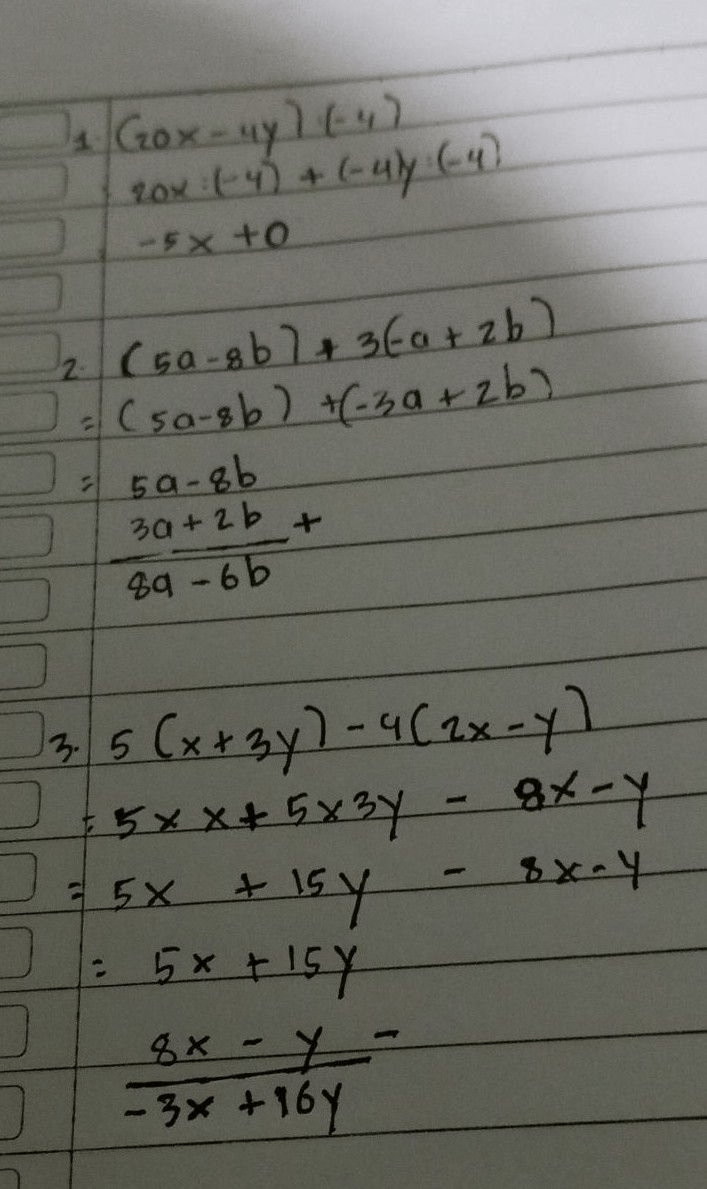 1. (20x - 4y) : (-4)
20x : (-4) + (-4)y : (-4)
-5x + 0
2. (5a - 8b) + 3(-a + 2b)
= (5a - 8b) + (-3a + 2b)
= 5a - 8b
3a + 2b +
8a - 6b
3. 5 (x + 3y) - 4 (2x - y)
= 5 x x + 5 x 3y - 8x - y
= 5x + 15y - 8x - y
= 5x + 15y
8x - y -
-3x + 16y